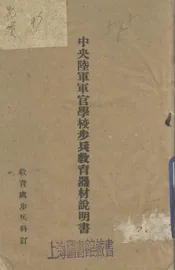 中央陸軍軍官學校步兵教育器材說明書
教育處步兵科訂
上海圖書館藏書